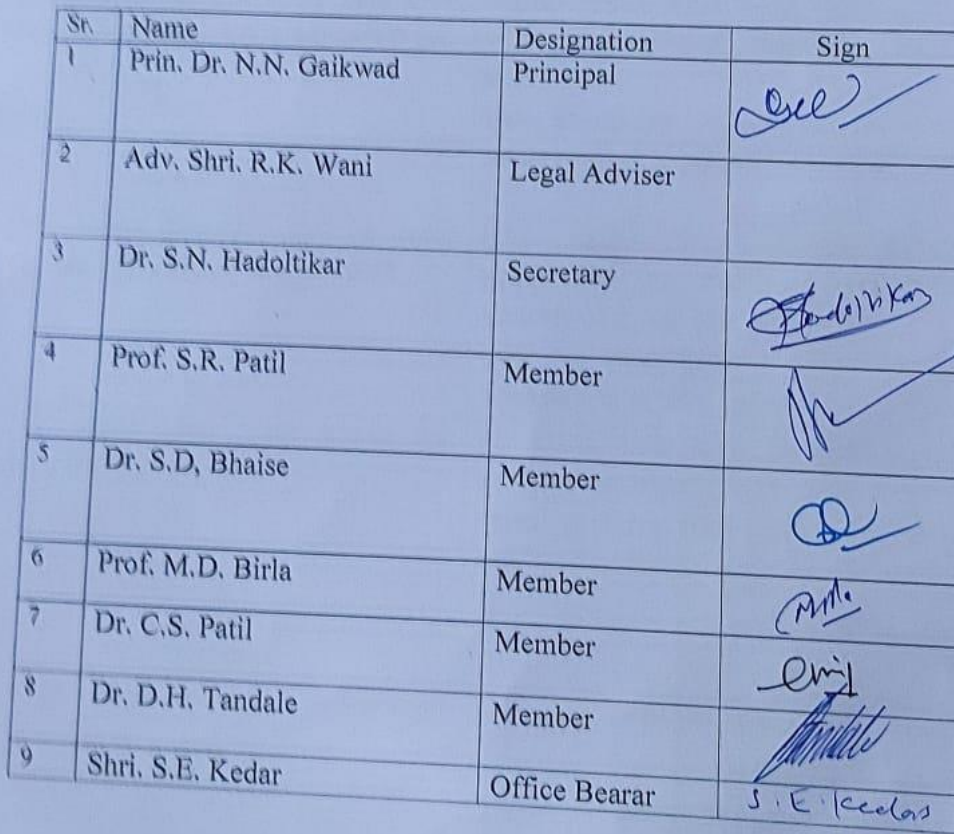 Sr. Name Designation Sign
1 Prin. Dr. N.N. Gaikwad Principal
2 Adv. Shri. R.K. Wani Legal Adviser
3 Dr. S.N. Hadoltikar Secretary
4 Prof. S.R. Patil Member
5 Dr. S.D, Bhaise Member
6 Prof. M.D. Birla Member
7 Dr. C.S. Patil Member
8 Dr. D.H. Tandale Member
9 Shri. S.E. Kedar Office Bearar S.E.Kedar